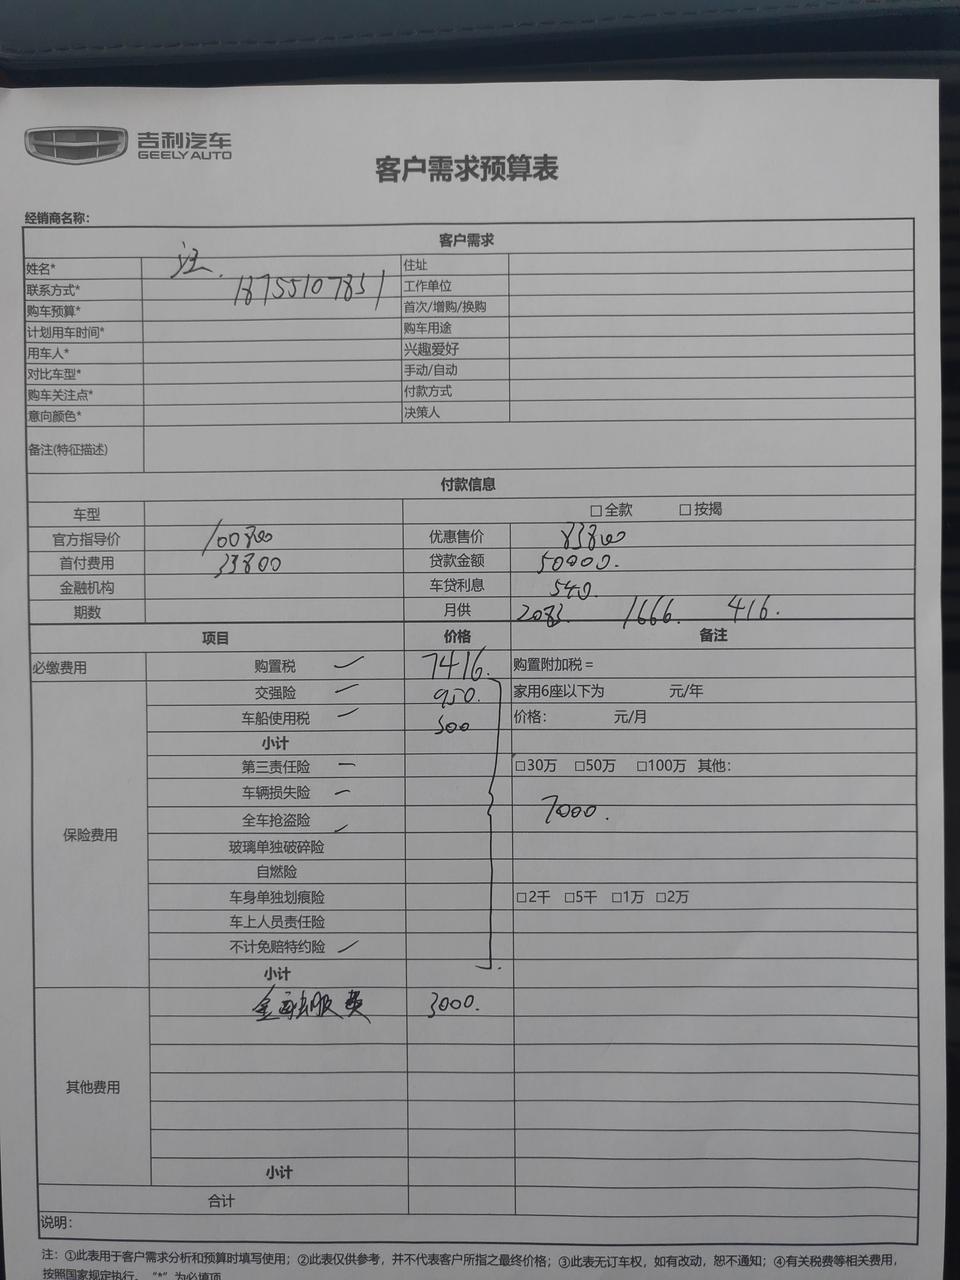 吉利汽车
GEELY AUTO
客户需求预算表
经销商名称：
客户需求
姓名* 汪. 住址
联系方式* 18755107851 工作单位
购车预算* 首次/增购/换购
计划用车时间* 购车用途
用车人* 兴趣爱好
对比车型* 手动/自动
购车关注点* 付款方式
意向颜色* 决策人
备注(特征描述)
付款信息
车型 □全款 □按揭
官方指导价 100800 优惠售价 83800
首付费用 33800 贷款金额 50000.
金融机构 车贷利息 540.
期数 月供 2083. 1666. 416.
项目 价格 备注
必缴费用 购置税 7416. 购置附加税=
交强险 950. 家用6座以下为 元/年
车船使用税 300 价格： 元/月
小计
第三责任险 □30万 □50万 □100万 其他：
车辆损失险
全车抢盗险 7000.
保险费用
玻璃单独破碎险
自燃险
车身单独划痕险 □2千 □5千 □1万 □2万
车上人员责任险
不计免赔特约险
小计
金融服务费 3000.
其他费用
小计
合计
说明：
注：①此表用于客户需求分析和预算时填写使用；②此表仅供参考，并不代表客户所指之最终价格；③此表无订车权，如有改动，恕不通知；④有关税费等相关费用，
按照国家规定执行。“*”为必填项